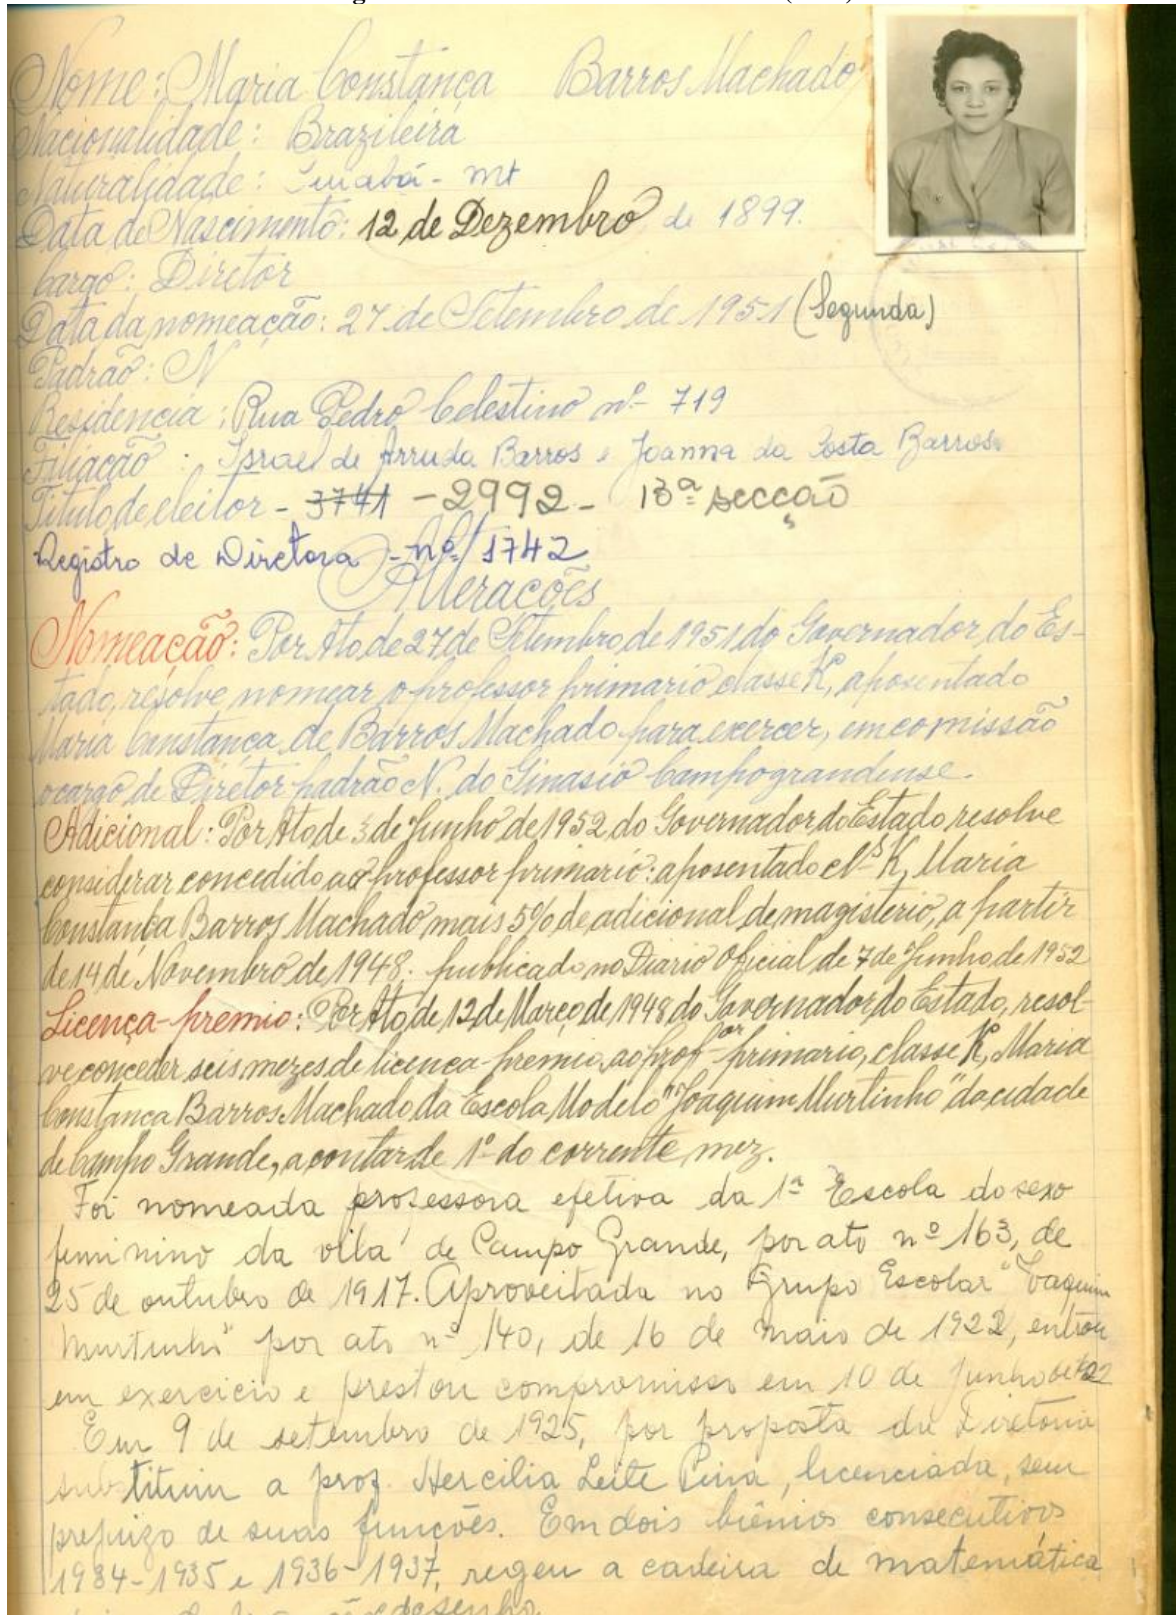 Nome: Maria Constança Barros Machado
Nacionalidade: Brazileira
Naturalidade: Cuiabá - mt
Data de Nascimento: 12 de Dezembro de 1899.
Cargo: Diretor
Data da nomeação: 27 de Setembro de 1951 (Segunda)
Padrão: N
Residencia: Rua Pedro Celestino nº- 719
Filiação: Israel de Arruda Barros e Joanna da Costa Barros
Titulo de eleitor - 3741 - 2992 - 13ª secção
Registro de Diretora - nº 1742
Alterações
Nomeação: Por Ato de 27 de Setembro de 1951 do Governador do Es-
tado, resolve nomear o professor primario classe K, aposentado
Maria Constança de Barros Machado para exercer, em comissão
o cargo de Diretor padrão N. do Ginasio Campograndense.
Adicional: Por Ato de 3 de Junho de 1952 do Governador do Estado resolve
considerar concedido ao professor primario: aposentado K, Maria
Constança Barros Machado mais 5% de adicional de magisterio, a partir
de 14 de Novembro de 1948. publicado no Diario Oficial de 7 de Junho de 1952
Licença-premio: Por Ato de 12 de Março de 1948 do Governador do Estado, resol-
ve conceder seis mezes de licença-premio, ao profor primario, classe K, Maria
Constança Barros Machado da Escola Modelo "Joaquim Murtinho" da cidade
de Campo Grande, a contar de 1º do corrente mez.
Foi nomeada professora efetiva da 1ª Escola do sexo
feminino da vila de Campo Grande, por ato nº 163, de
25 de outubro de 1917. Aproveitada no Grupo Escolar "Joaquim
Murtinho" por ato nº 140, de 16 de maio de 1922, entrou
em exercicio e prestou compromisso em 10 de Junho de 1922
Em 9 de setembro de 1925, por proposta da Diretoria
substituiu a prof. Hercilia Leite Pina, licenciada, sem
prejuizo de suas funções. Em dois biênios consecutivos
1934-1935 e 1936-1937, regeu a cadeira de matemática
desenho.